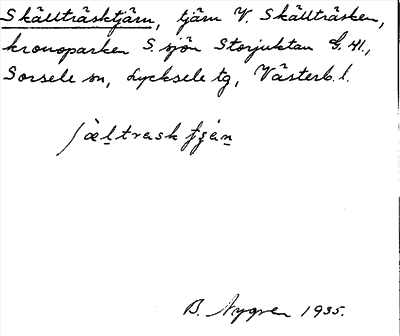 Skällträsktjärn, tjärn V. Skällträsken,
kronoparken S. sjön Storjuktan G. 41.,
Sorsele sn, Lycksele tg, Västerb. l.
ʃältraskʄʒän
B. Nygren 1935.